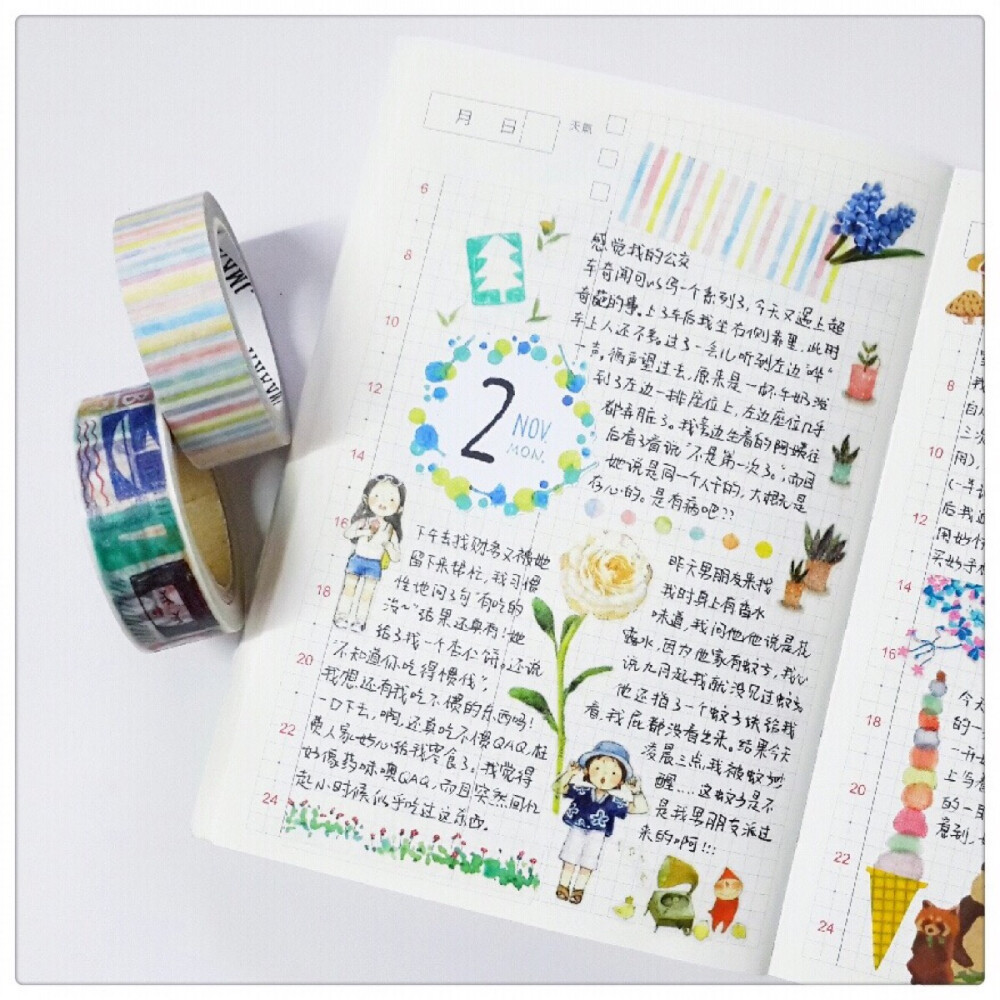 月 日 天氣
6
8
10
12
14
16
18
20
22
24
2
NOV
MON.
感觉我的公交
车奇闻可以写一个系列了,今天又遇上超
奇葩的事。上了车后我坐右侧靠里,此时
车上人还不多。过了一会儿听到左边"哗"
一声,循声望过去,原来是一杯牛奶泼
到了左边一排座位上,左边座位几乎
都弄脏了。我旁边坐着的阿姨往
后看了看说"不是第一次了。"而且
她说是同一个人干的,大概就是
存心的。是有病吧??
下午去找财务又被她
留下来掉忙,我习惯
性地问了句"有吃的
没~"结果还真有!她
给了我一个杏仁饼,还说
"不知道你吃得惯伐",
我想还有我吃不惯的东西吗!
一口下去,啊,还真吃不惯QAQ,枉
费人家好心给我零食了。我觉得
好像药味噢QAQ,而且突然回忆
起小时候似乎吃过这东西.
昨天男朋友来找
我时身上有香水
味道,我问他,他说是花
露水,因为他家有蚊子,我心
说九月起我就没见过蚊子
他还拍了一个蚊子块给我
看,我屁都没看出来。结果今天
凌晨三点,我被蚊吵
醒....这蚊子是不
是我男朋友派过
来的啊!!!
8
10
12
14
16
18
20
22
24
三次
后我
买好
今天
的一
上写着
的一
看到,
JMA